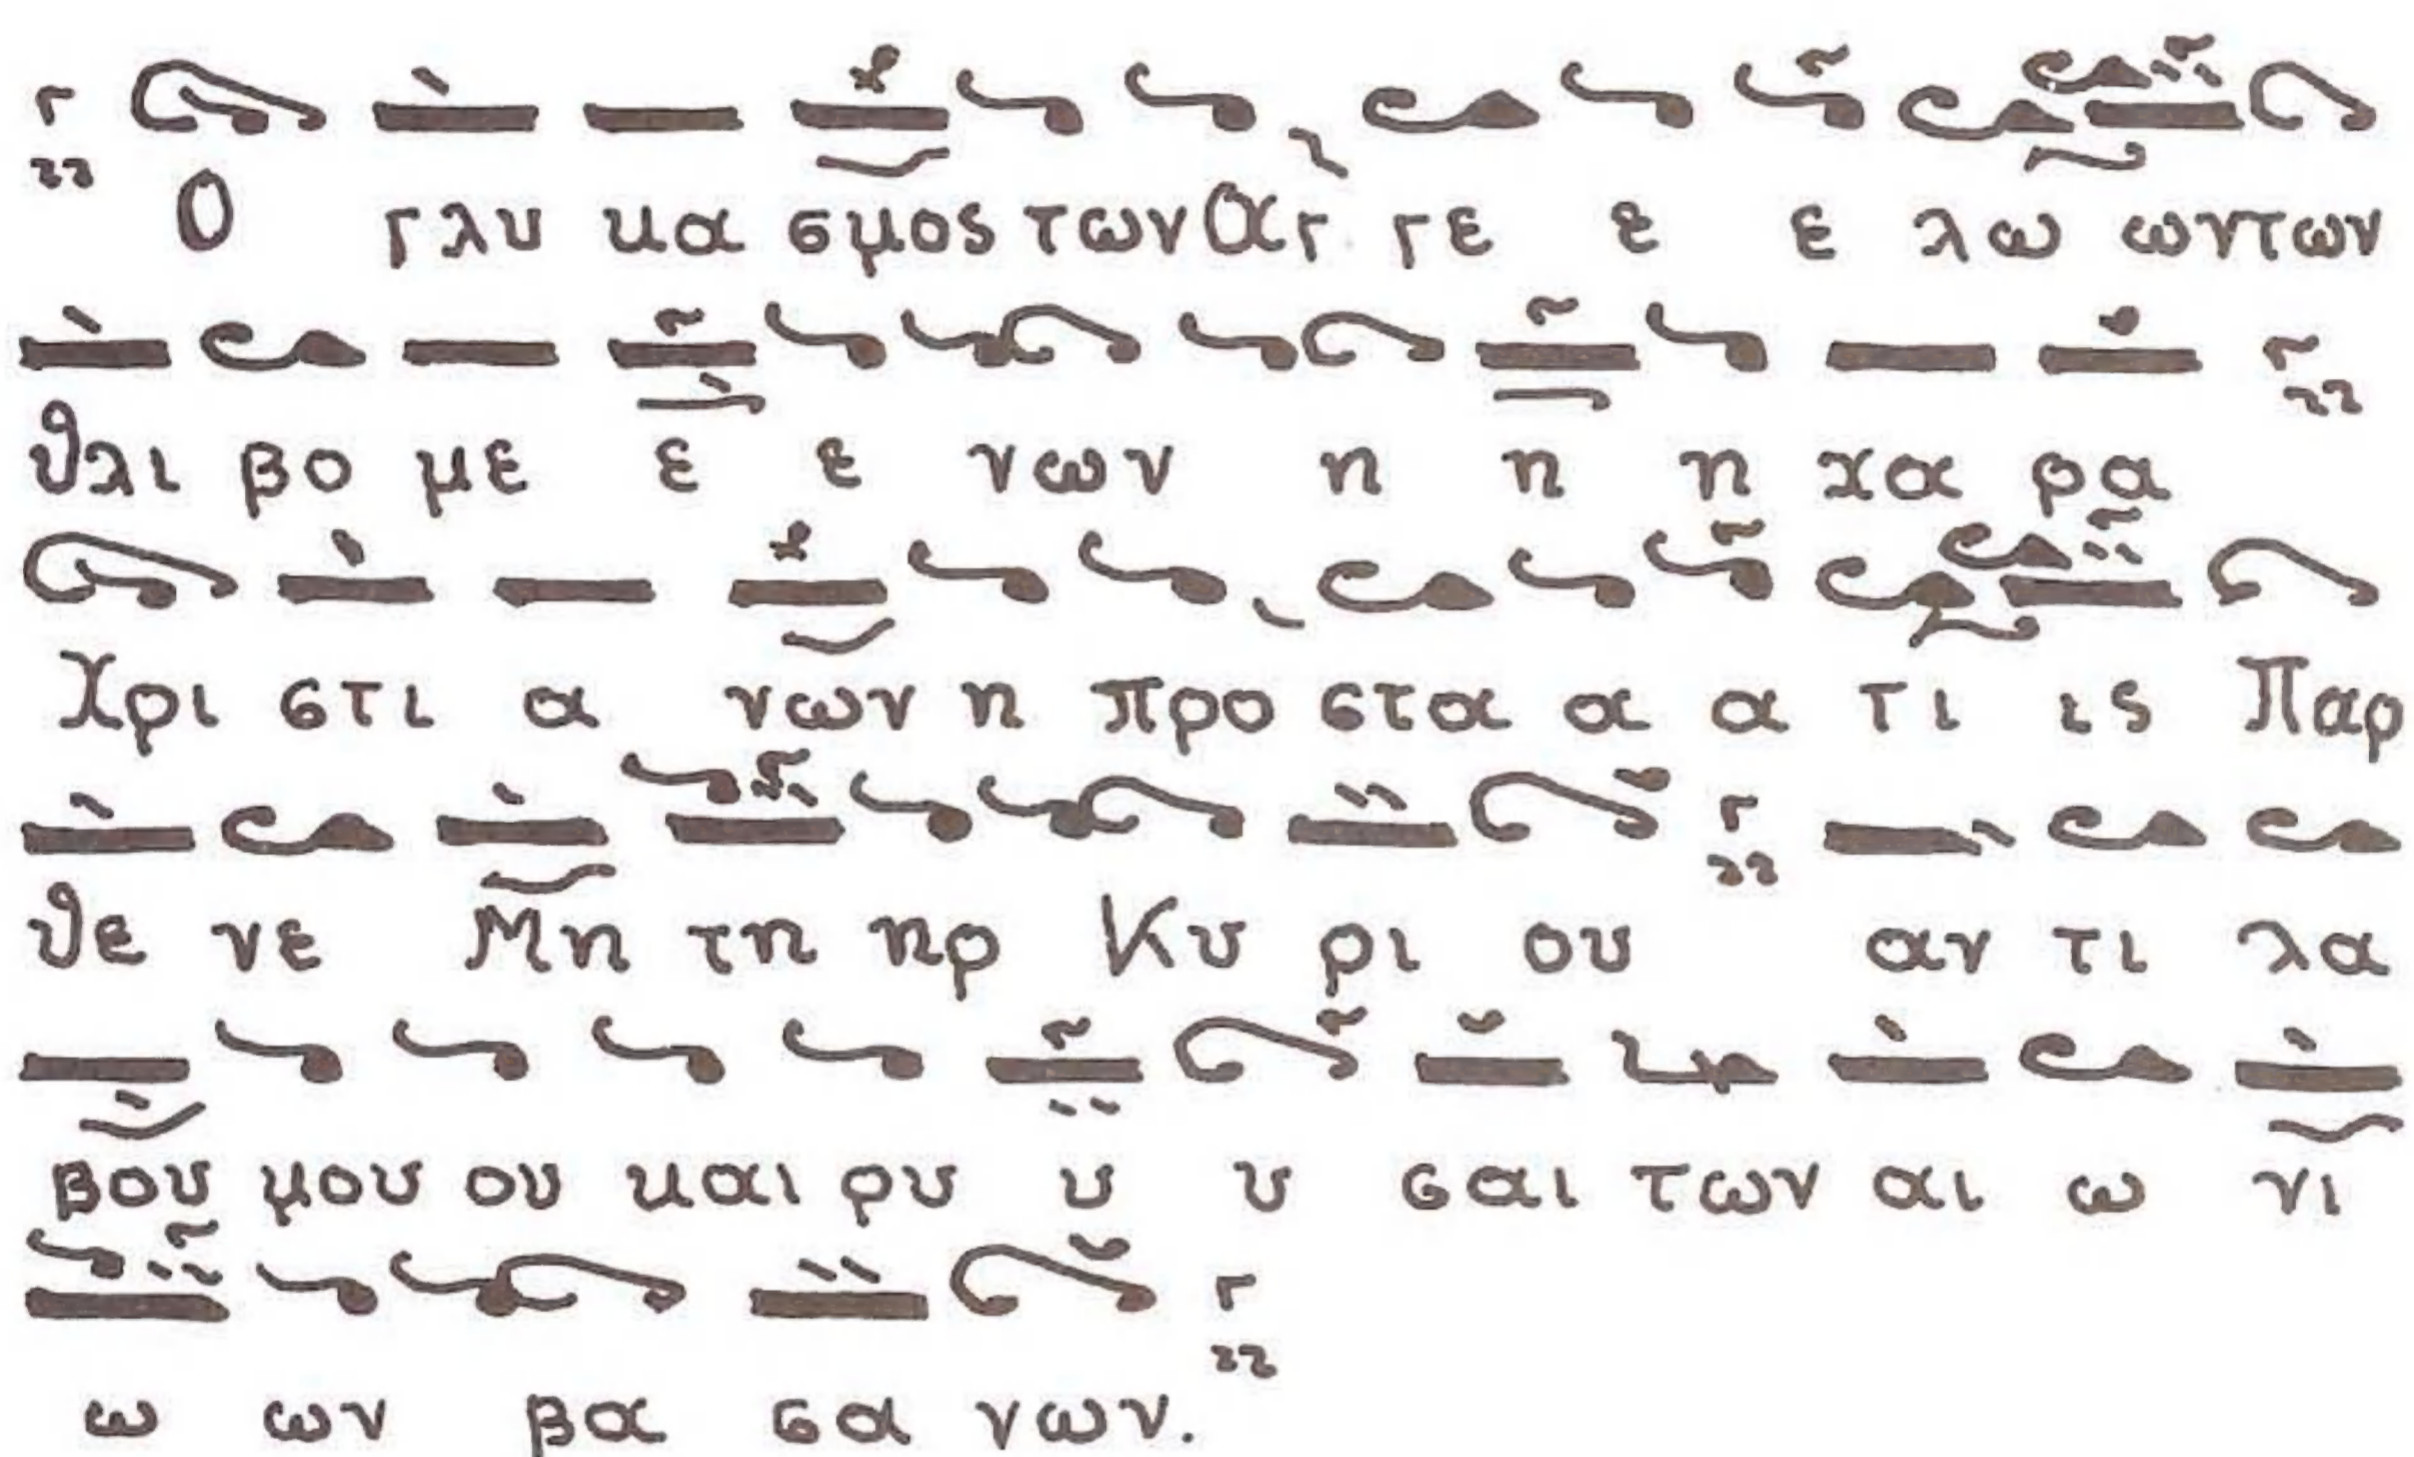 Ο γλυ κα σμος των Αγ γε ε ε λω ωντων
θλι βο με ε ε νων η η η χα ρα
Χρι στι α νων η προ στα α α τι ις Παρ
θε νε Μη τη ηρ Κυ ρι ου αν τι λα
βου μου ου και ρυ υ υ σαι των αι ω νι
ω ων βα σα νων.